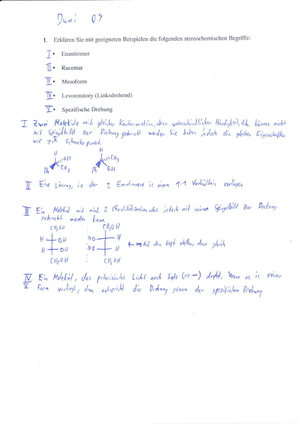 Juni 04
1. Erklären Sie mit geeigneten Beispielen die folgenden stereochemischen Begriffe:
I • Enantiomer
II • Racemat
III • Mesoform
IV • Levorotatory (Linksdrehend)
V • Spezifische Drehung
I Zwei Moleküle mit gleicher aber unterschiedlicher können nicht
mit Spiegelbild zur Deckung gebracht werden. Sie haben jedoch die gleichen Eigenschaften
wie z.B. Schmelzpunkt
H H
OH
CH3
Ph Ph
II Eine Lösung, in der 2 Enantiomere in einem 1:1 Verhältnis vorliegen
III Ein Molekül mit mind. 2 das jedoch mit seinem Spiegelbild zur Deckung
gebracht werden kann
CH2OH CH2OH
H OH HO H
H OH HO H
CH2OH CH2OH
IV Ein Molekül, das polarisiertes Licht nach links dreht. Wenn es in reiner
V Form vorliegt, dann entspricht die Drehung genau der spezifischen Drehung